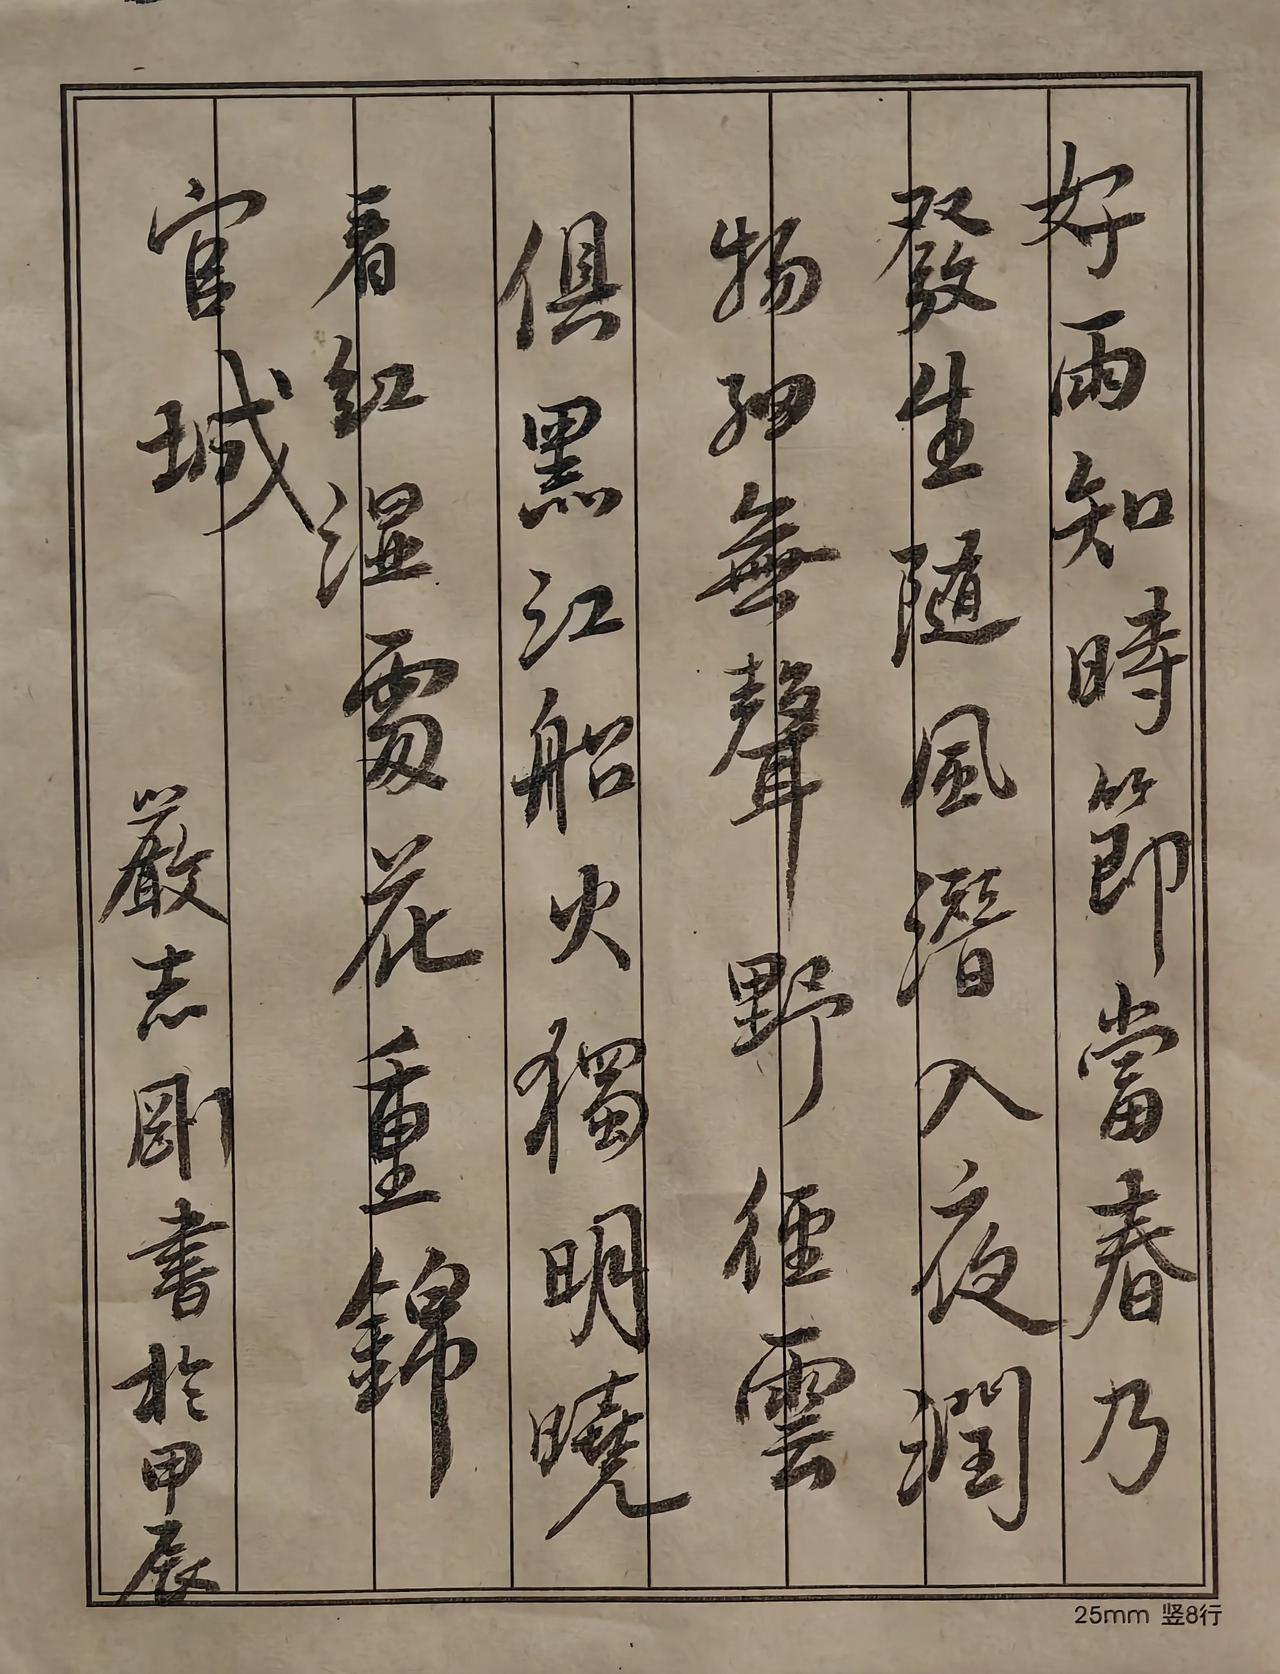 好雨知時節當春乃
發生随風潛入夜潤
物細無聲野徑雲
俱黑江船火獨明曉
看紅濕處花重錦
官城
嚴志剛書於甲辰
25mm 竖8行